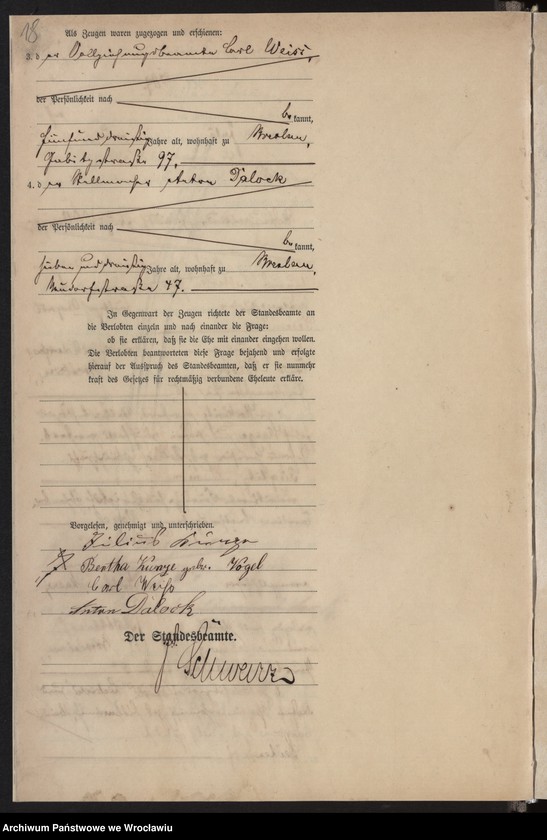 18
Als Zeugen waren zugezogen und erschienen:
3. d er Vollziehungsbeamte Carl Weiss,
der Persönlichkeit nach
be kannt,
fünfunddreißig Jahre alt, wohnhaft zu Breslau,
Gabitzstraße 97.
4. d er Stellmacher Anton Dalock
der Persönlichkeit nach
be kannt,
sieben und dreißig Jahre alt, wohnhaft zu Breslau,
Neudorfstraße 47.
In Gegenwart der Zeugen richtete der Standesbeamte an
die Verlobten einzeln und nach einander die Frage:
ob sie erklären, daß sie die Ehe mit einander eingehen wollen.
Die Verlobten beantworteten diese Frage bejahend und erfolgte
hierauf der Ausspruch des Standesbeamten, daß er sie nunmehr
kraft des Gesetzes für rechtmäßig verbundene Eheleute erkläre.
Vorgelesen, genehmigt und unterschrieben.
Julius Kunze
Bertha Kunze geb. Vogel
Carl Weiß
Anton Dalock
Der Standesbeamte.
Schwarz
Archiwum Państwowe we Wrocławiu